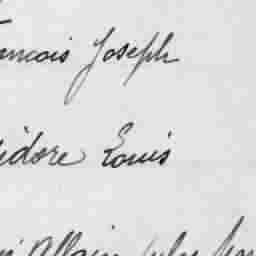 ancois Joseph
idore Louis
Allain Jules